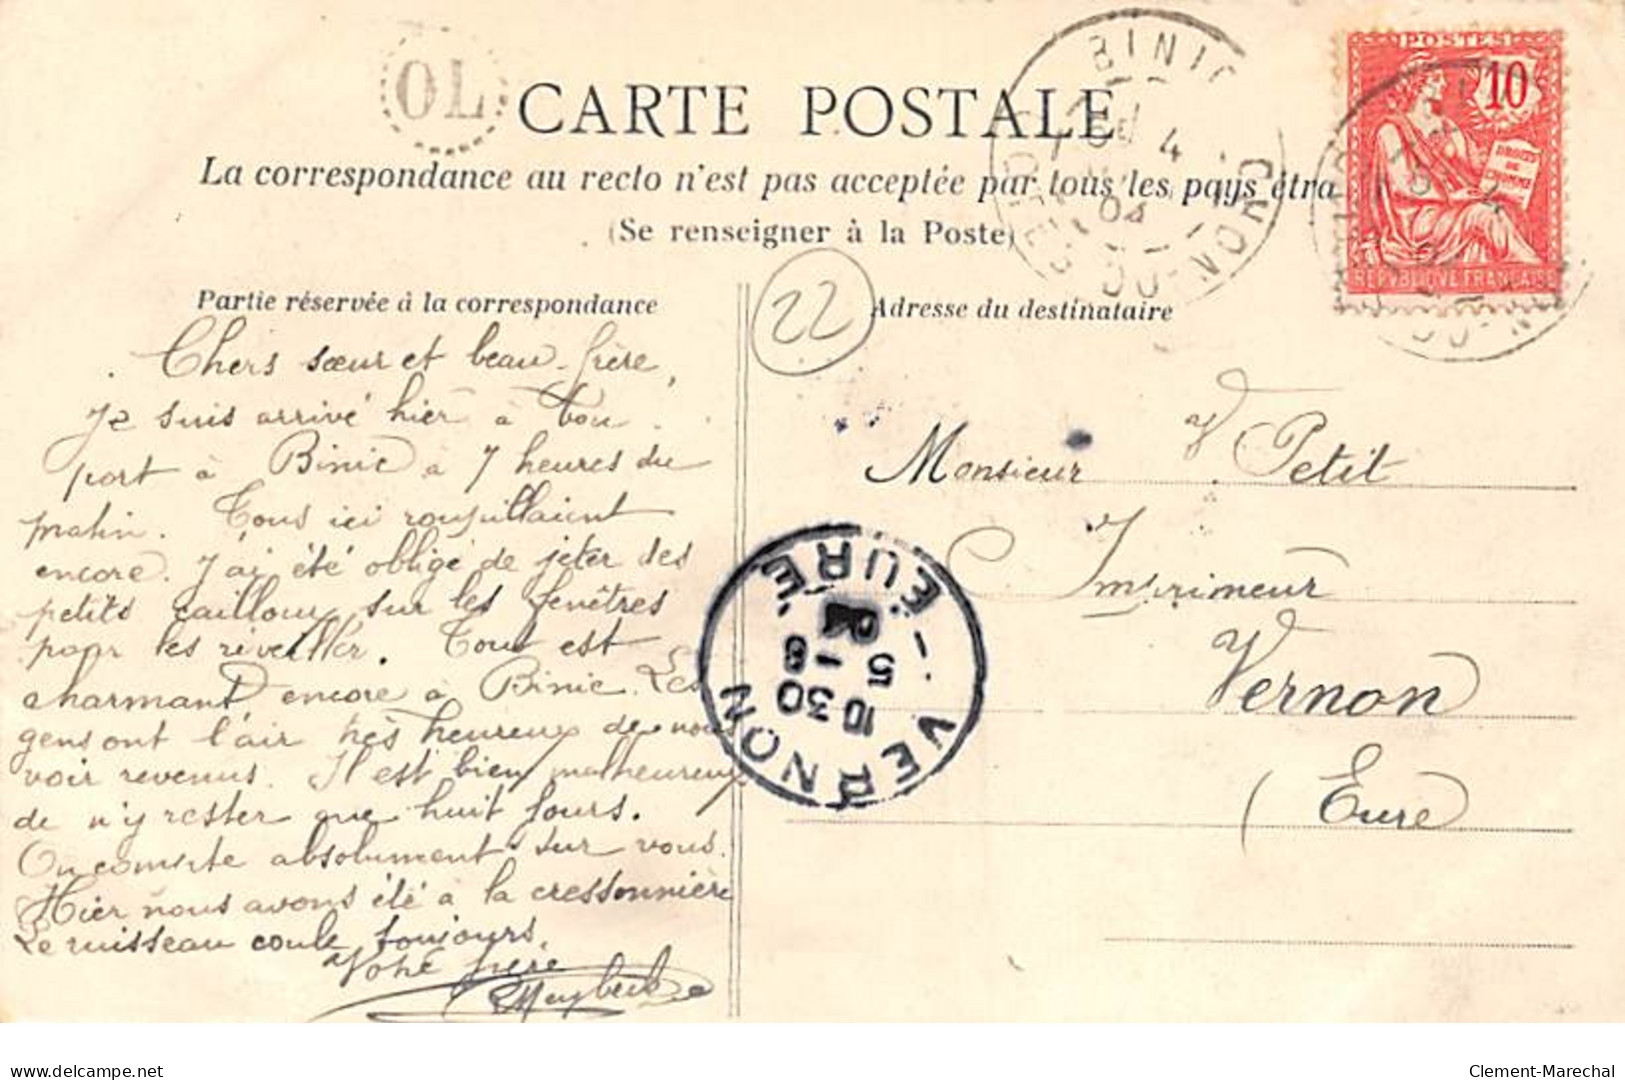 OL
CARTE POSTALE
La correspondance au recto n'est pas acceptée par tous les pays étra
(Se renseigner à la Poste)
BINIC
4
04
CÔTES DU-NORD
POSTES
10
DROITS DE L'HOMME
REPVBLIQVE FRANÇAISE
22
Partie réservée à la correspondance
Chers sœur et beau-frère,
Je suis arrivé hier à bon
port à Binic à 7 heures du
matin. Tous ici roupillaient
encore. J'ai été obligé de jeter des
petits cailloux sur les fenêtres
pour les réveiller. Tout est
charmant encore à Binic. Les
gens ont l'air très heureux de nous
voir revenus. Il est bien malheureux
de n'y rester que huit jours.
On compte absolument sur vous.
Hier nous avons été à la cressonnière
Le ruisseau coule toujours.
Votre frère
Adresse du destinataire
Monsieur V Petit
Imprimeur
Vernon
(Eure)
VERNON - EURE
10 30
5 - 8
04
delcampe.net
Clement-Marechal